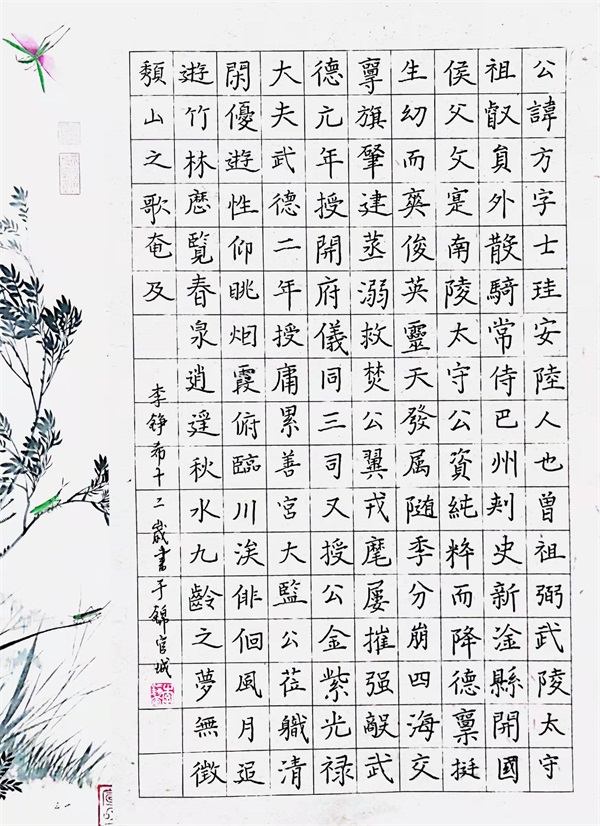 公諱方字士珪安陸人也曽祖弼武陵太守
祖叡貟外散騎常侍巴州刾史新淦縣開國
侯父攵寔南陵太守公資純粹而降德禀挺
生幼而爽俊英靈天發属随季分崩四海交
搴旗肇建蒸溺救焚公翼戎麾屡摧强敵武
德元年授開府儀同三司又授公金紫光禄
大夫武德二年授庸累善宮大監公莅職清
閑優遊性仰眺烟霞俯臨川涘俳佪風月追
遊竹林歷覽春泉逍遥秋水九齡之夢無徵
頽山之歌奄及
李錚希十二歲書于錦官城